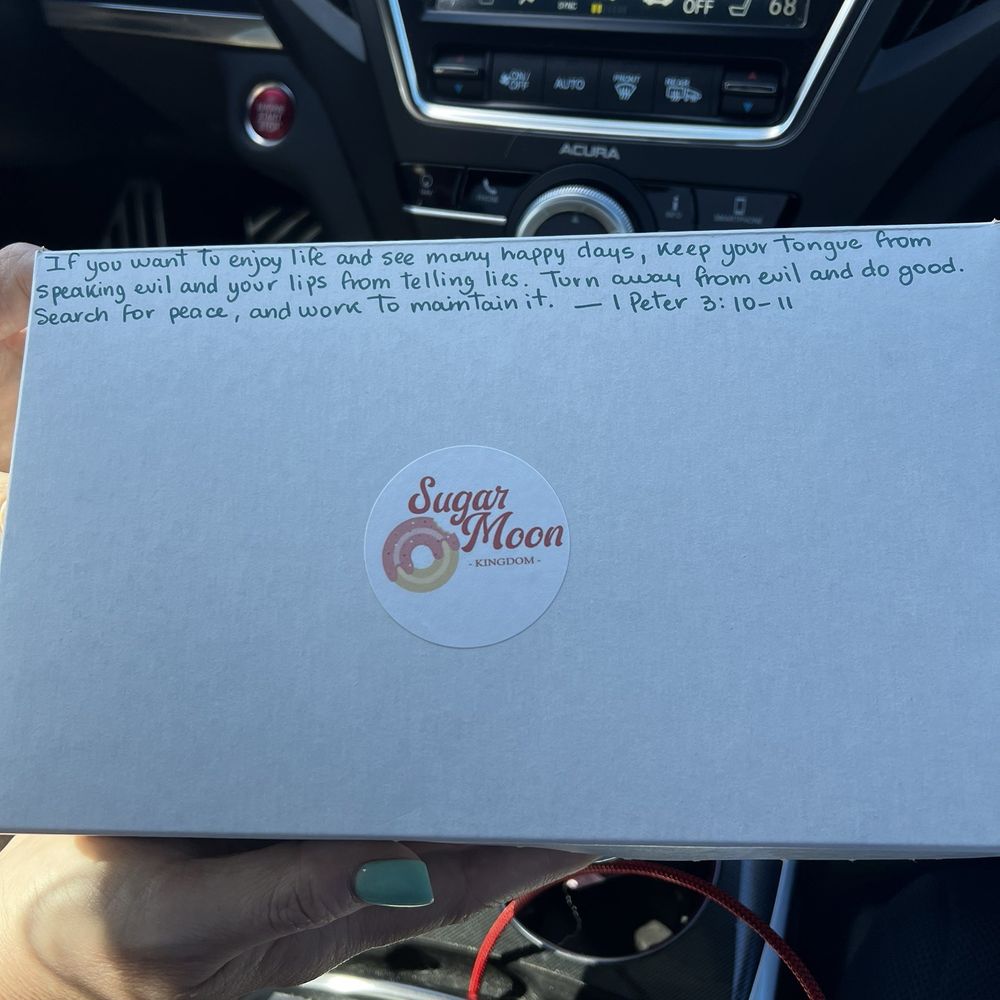 OFF 68
ON/OFF AUTO FRONT REAR
ACURA
INFO SMARTPHONE
If you want to enjoy life and see many happy days, keep your tongue from
speaking evil and your lips from telling lies. Turn away from evil and do good.
Search for peace, and work to maintain it. — 1 Peter 3:10-11
Sugar
Moon
- KINGDOM -